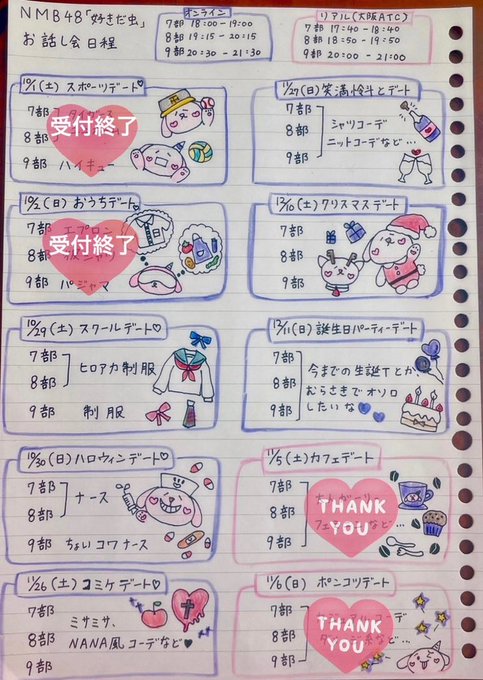 NMB48「好きだ虫」
お話し会日程
オンライン
7部 18:00-19:00
8部 19:15-20:15
9部 20:30-21:30
リアル(大阪ATC)
7部 17:40-18:40
8部 18:50-19:50
9部 20:00-21:00
10/1(土)スポーツデート♡
7部
8部
受付終了
9部 ハイキュー
10/2(日)おうちデート♡
7部 エプロン
8部
受付終了
9部 パジャマ
10/29(土)スクールデート♡
7部
8部
ヒロアカ制服
9部 制服
10/30(日)ハロウィンデート♡
7部
8部
ナース
9部 ちょいコワナース
11/26(土)コミケデート♡
7部
8部
9部
ミサミサ、
NANA風コーデなど♥
11/27(日)笑満怜斗とデート
7部
8部
9部
シャツコーデ
ニットコーデなど…
12/10(土)クリスマスデート
7部
8部
9部
12/11(日)誕生日パーティーデート
7部
8部
9部
今までの生誕Tとか、
むらさきでオソロ
したいな
11/5(土)カフェデート
7部
8部
9部
THANK
YOU
など…
11/6(日)ポンコツデート
7部
8部
9部
THANK
YOU
など…